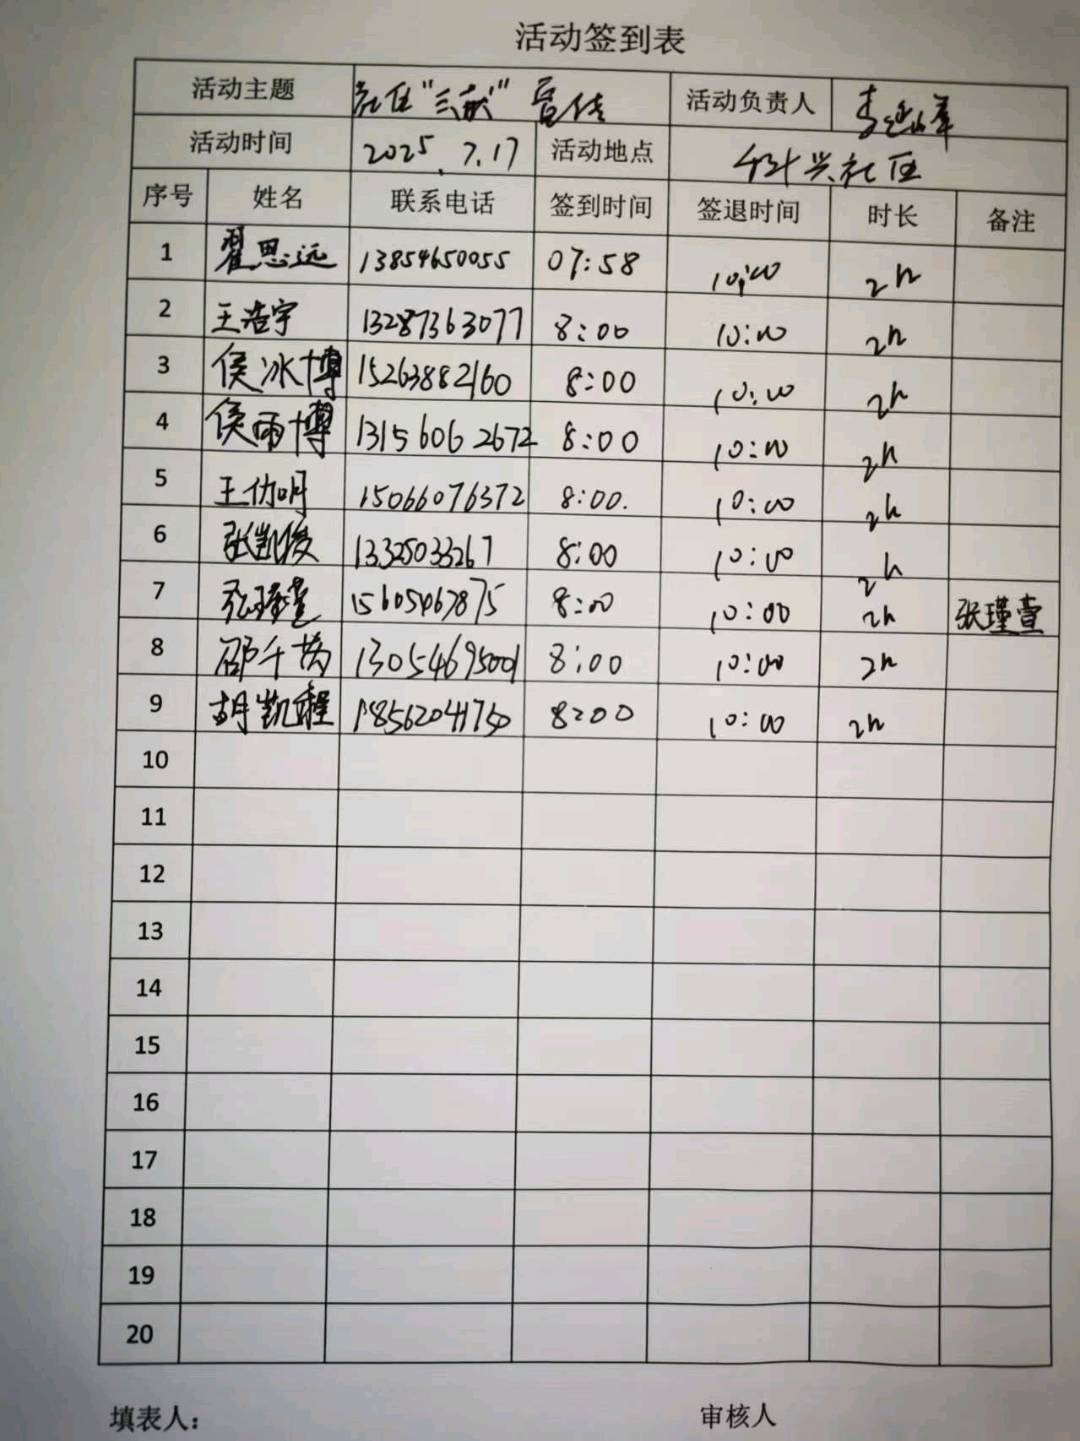 活动签到表
活动主题 社区"三献"宣传 活动负责人 李延峰
活动时间 2025.7.17 活动地点 社区
序号 姓名 联系电话 签到时间 签退时间 时长 备注
1 翟思远 13854650055 07:58 10:00 2h
2 王浩宇 13287363077 8:00 10:00 2h
3 侯冰博 15263882160 8:00 10:00 2h
4 侯雨博 13156062672 8:00 10:00 2h
5 王仂明 15066076372 8:00. 10:00 2h
6 张凯俊 13325033267 8:00 10:00 2h
7 张瑾萱 15605467875 8:00 10:00 2h 张瑾萱
8 邵千芮 13054695001 8:00 10:00 2h
9 胡凯程 18562041750 8:00 10:00 2h
10
11
12
13
14
15
16
17
18
19
20
填表人： 审核人